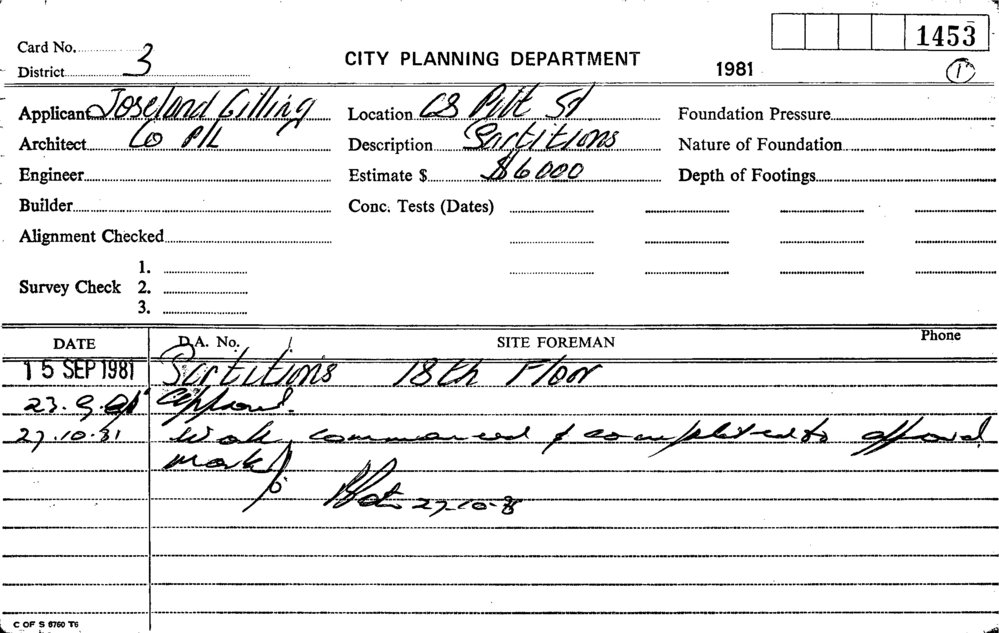 1453
Card No. 3
District
CITY PLANNING DEPARTMENT
1981
1
Applicant Joseland Gilling
Architect Co P/L
Engineer
Builder
Alignment Checked
Survey Check 1.
2.
3.
Location 68 Pitt St
Description Partitions
Estimate $ $6000
Conc. Tests (Dates)
Foundation Pressure
Nature of Foundation
Depth of Footings
DATE D.A. No. SITE FOREMAN Phone
15 SEP 1981 Partitions 18th Floor
23.9.81 approved.
27.10.81 Work commenced & completed to approval
27-10-8
C OF S 6760 T6